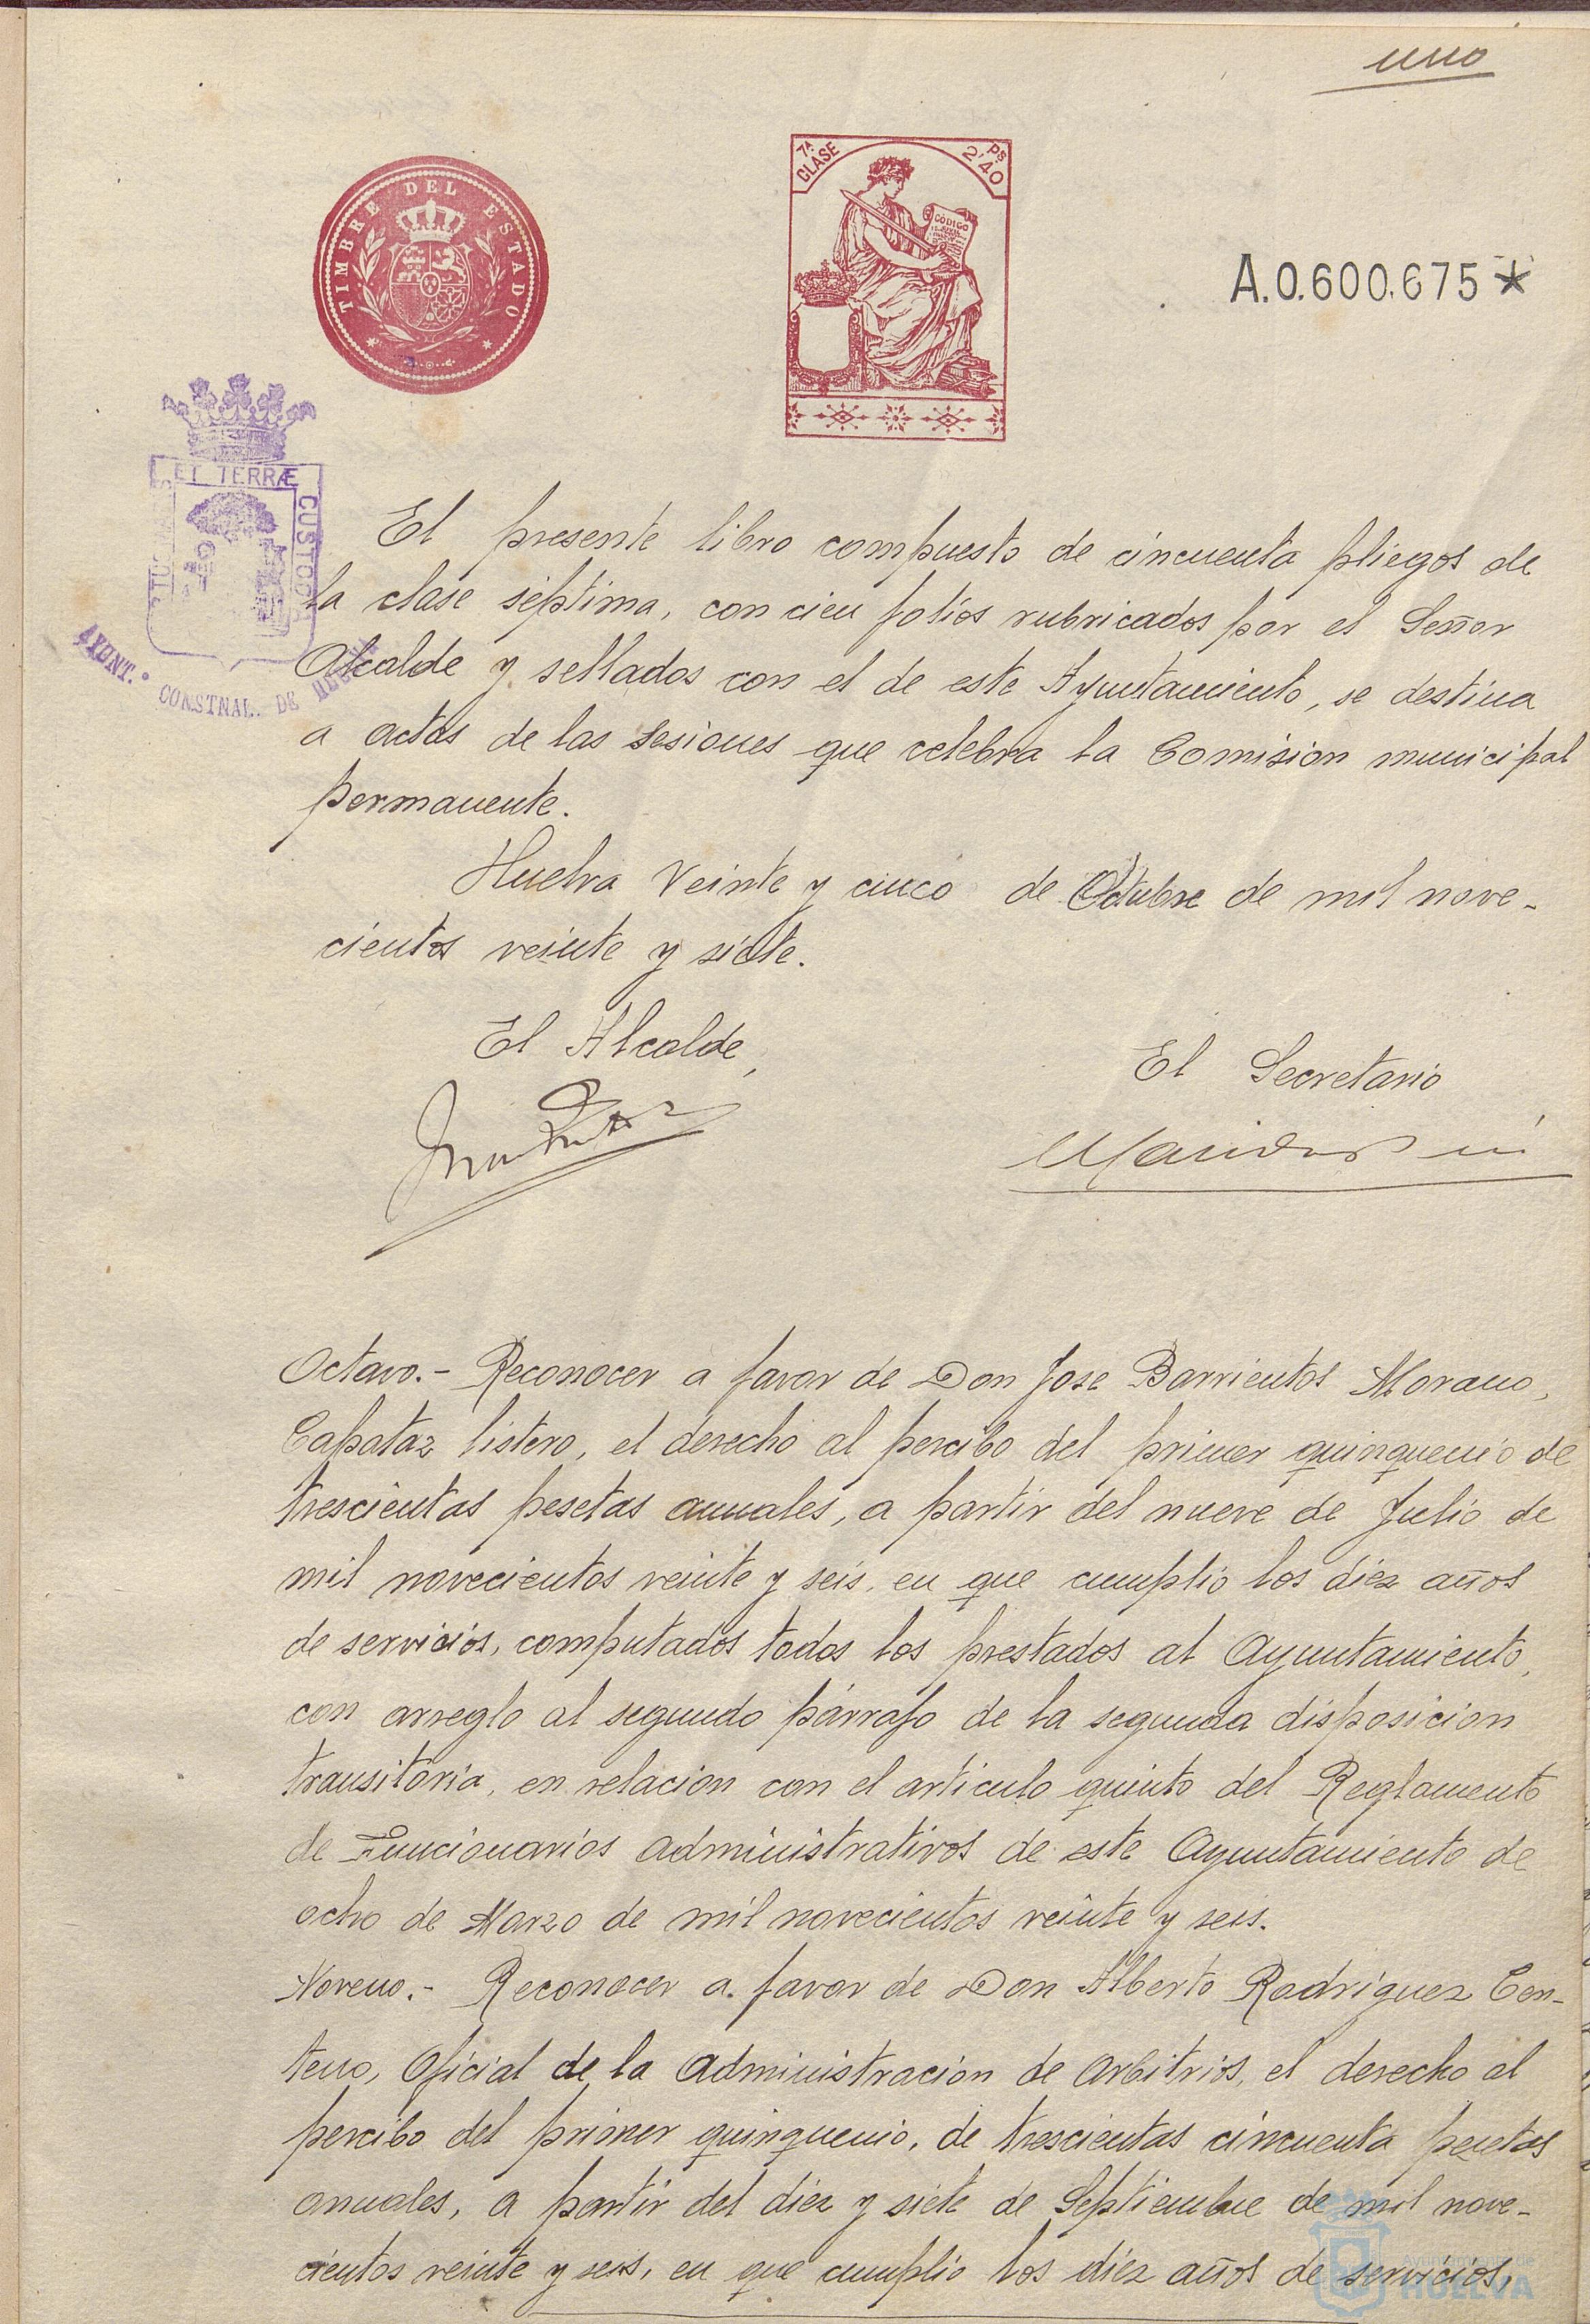 uno
TIMBRE DEL ESTADO
7ª CLASE
2'40 Ps
CÓDIGO
A.0.600.675*
ET TERRÆ CUSTODIA
AYUNT.º CONSTNAL. DE HUELVA
El presente libro compuesto de cincuenta pliegos de
la clase séptima, con cien folios rubricados por el Señor
Alcalde y sellados con el de este Ayuntamiento, se destina
a actas de las sesiones que celebra la Comision municipal
permanente.
Huelva Veinte y cinco de Octubre de mil nove-
cientos veinte y siete.
El Alcalde,
El Secretario
Octavo.- Reconocer a favor de Don Jose Barrientos Morano,
Capataz listero, el derecho al percibo del primer quinquenio de
trescientas pesetas anuales, a partir del nueve de Julio de
mil novecientos veinte y seis, en que cumplio los diez años
de servicios, computados todos los prestados al Ayuntamiento,
con arreglo al segundo párrafo de la segunda disposicion
transitoria, en relacion con el articulo quinto del Reglamento
de Funcionarios administrativos de este Ayuntamiento de
ocho de Marzo de mil novecientos veinte y seis.
Noveno.- Reconocer a favor de Don Alberto Rodriguez Cen-
teno, Oficial de la Administracion de Arbitrios, el derecho al
percibo del primer quinquenio, de trescientas cincuenta pesetas
anuales, a partir del diez y siete de Septiembre de mil nove-
cientos veinte y seis, en que cumplio los diez años de servicios,
Ayuntamiento de
HUELVA